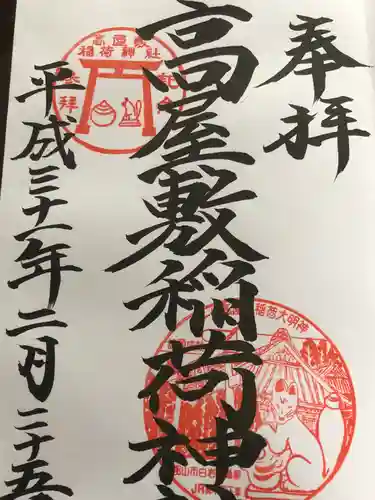 奉拝
高屋敷稲荷神
平成三十一年二月二十五
稲荷神社
参拝
記念
稲荷大明神